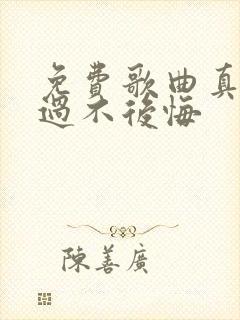 免費歌曲真
過不後悔
陳善廣